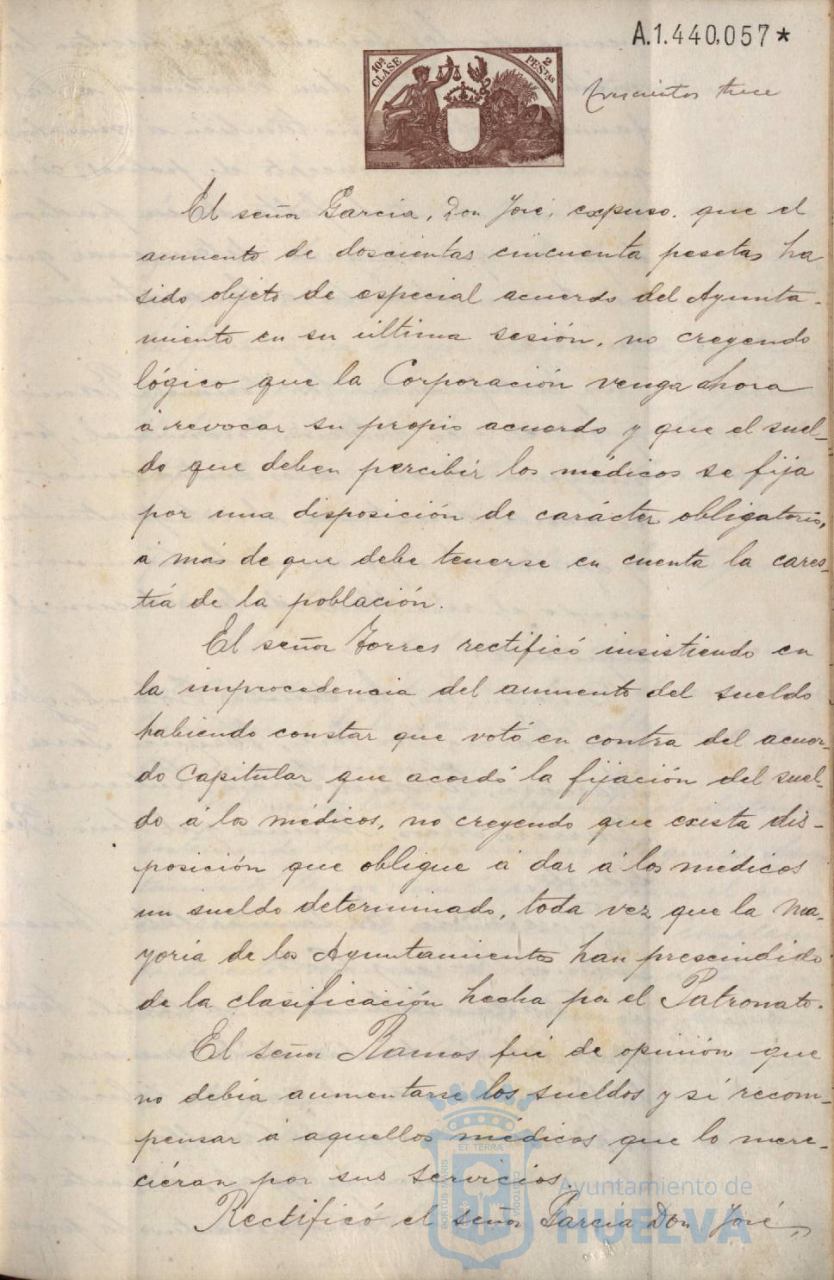 A.1.440,057*
10ª CLASE
2 PESTAS
trescientos trece
El señor Garcia, Don José, expuso. que el
aumento de doscientas cincuenta pesetas ha
sido objeto de especial acuerdo del Ayunta-
miento en su ultima sesión, no creyendo
lógico que la Corporación venga ahora
á revocar su propio acuerdo y que el suel-
do que deben percibir los médicos se fija
por una disposición de carácter obligatorio,
á más de que debe tenerse en cuenta la cares-
tía de la población.
El señor Torres rectificó insistiendo en
la improcedencia del aumento del sueldo
habiendo constar que votó en contra del acuer-
do Capitular que acordó la fijación del suel-
do á los médicos, no creyendo que exista dis-
posición que obligue á dar á los médicos
un sueldo determinado, toda vez que la ma-
yoría de los Ayuntamientos han prescindido
de la clasificación hecha por el Patronato.
El señor Ramos fué de opinión que
no debía aumentarse los sueldos y sí recom-
pensar á aquellos médicos que lo mere-
ciéran por sus servicios
Rectificó el señor Garcia Don José,
Ayuntamiento de
HUELVA